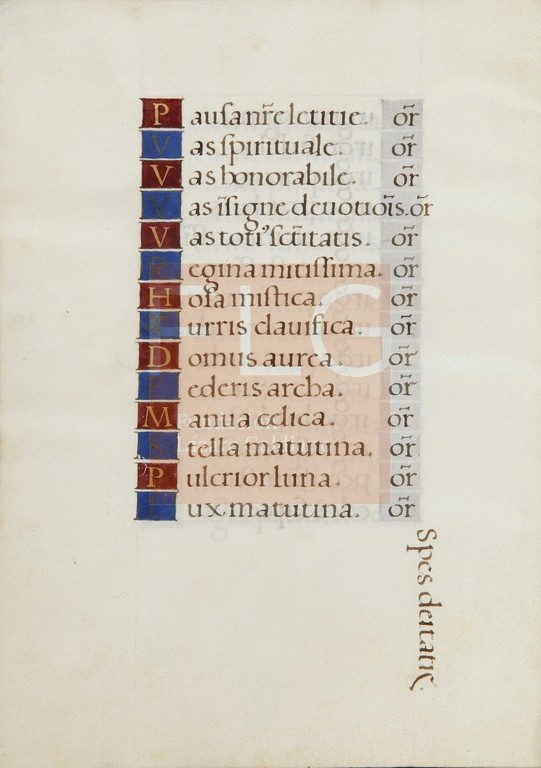 Pausa nr̃e letitie. or̃
Vas spirituale. or̃
Vas honorabile. or̃
Vas ĩsigne deuotiõis. or̃
Vas toti⁹ sctitatis. or̃
Regina mitissima. or̃
Hosa mistica. or̃
Turris dauifica. or̃
Domus aurea. or̃
Federis archa. or̃
Manua celica. or̃
Stella matutina. or̃
Pulcrior luna. or̃
Lux matutina. or̃
Spes deitatis.
FLG